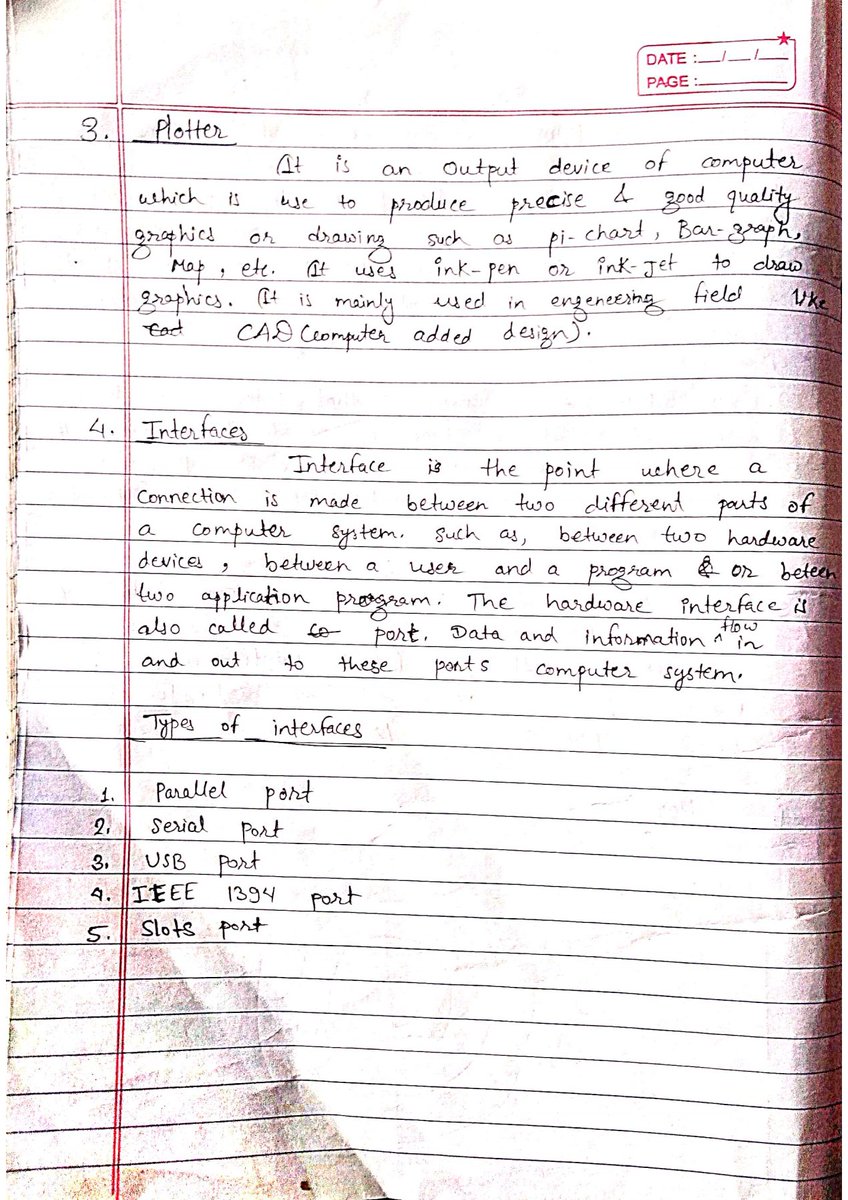 DATE :__/__/__
PAGE :________
3. Plotter
It is an output device of computer
which is use to produce precise & good quality
graphics or drawing such as pi-chart, Bar-graph,
Map, etc. It uses ink-pen or ink-Jet to draw
graphics. It is mainly used in engeneering field like
Cad CAD (computer added design).
4. Interfaces
Interface is the point where a
connection is made between two different parts of
a computer system. such as, between two hardware
devices, between a user and a program & or beteen
two application program. The hardware interface is
also called to port. Data and information ^ flow in
and out to these ports computer system.
Types of interfaces
1. Parallel port
2. Serial port
3. USB port
4. IEEE 1394 port
5. Slots port